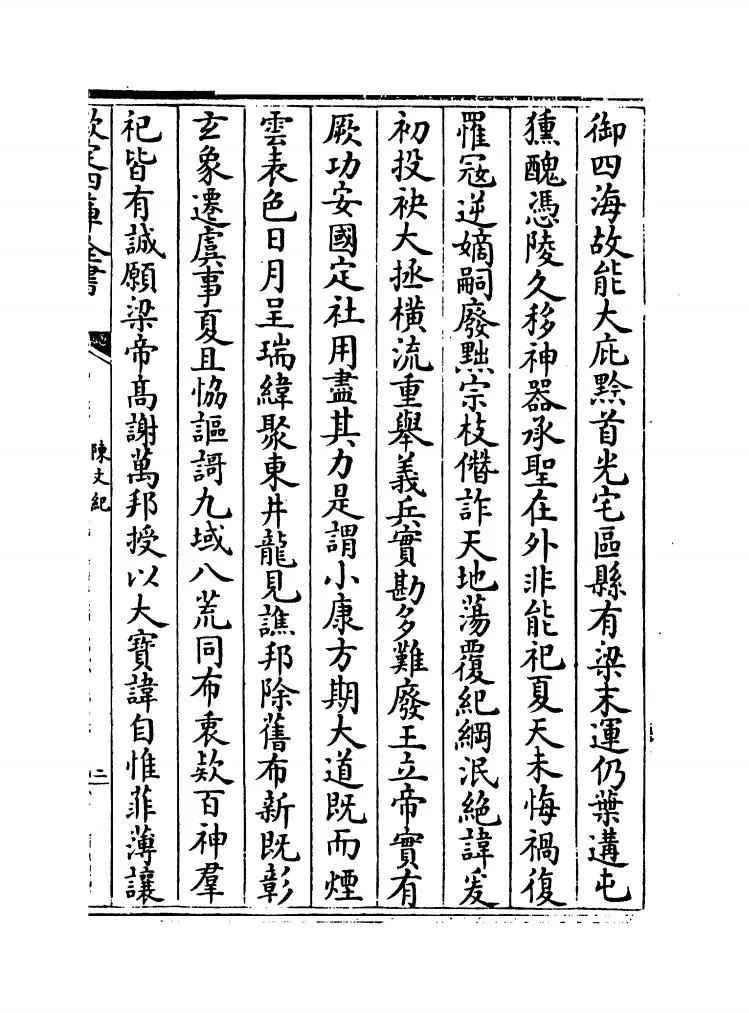 御四海故能大庇黔首光宅區縣有梁末運仍葉遘屯
獯醜憑陵久移神器承聖在外非能祀夏天未悔禍復
罹寇逆嫡嗣廢黜宗枝僭詐天地蕩覆紀綱泯絶諱爰
初投袂大拯橫流重舉義兵實勘多難廢王立帝實有
厥功安國定社用盡其力是謂小康方期大道既而煙
雲表色日月呈瑞緯聚東井龍見譙邦除舊布新既彰
玄象遷虞事夏且恊謳謌九域八荒同布衷欵百神羣
祀皆有誠願梁帝髙謝萬邦授以大寶諱自惟菲薄讓
欽定四庫全書
陳文紀
二